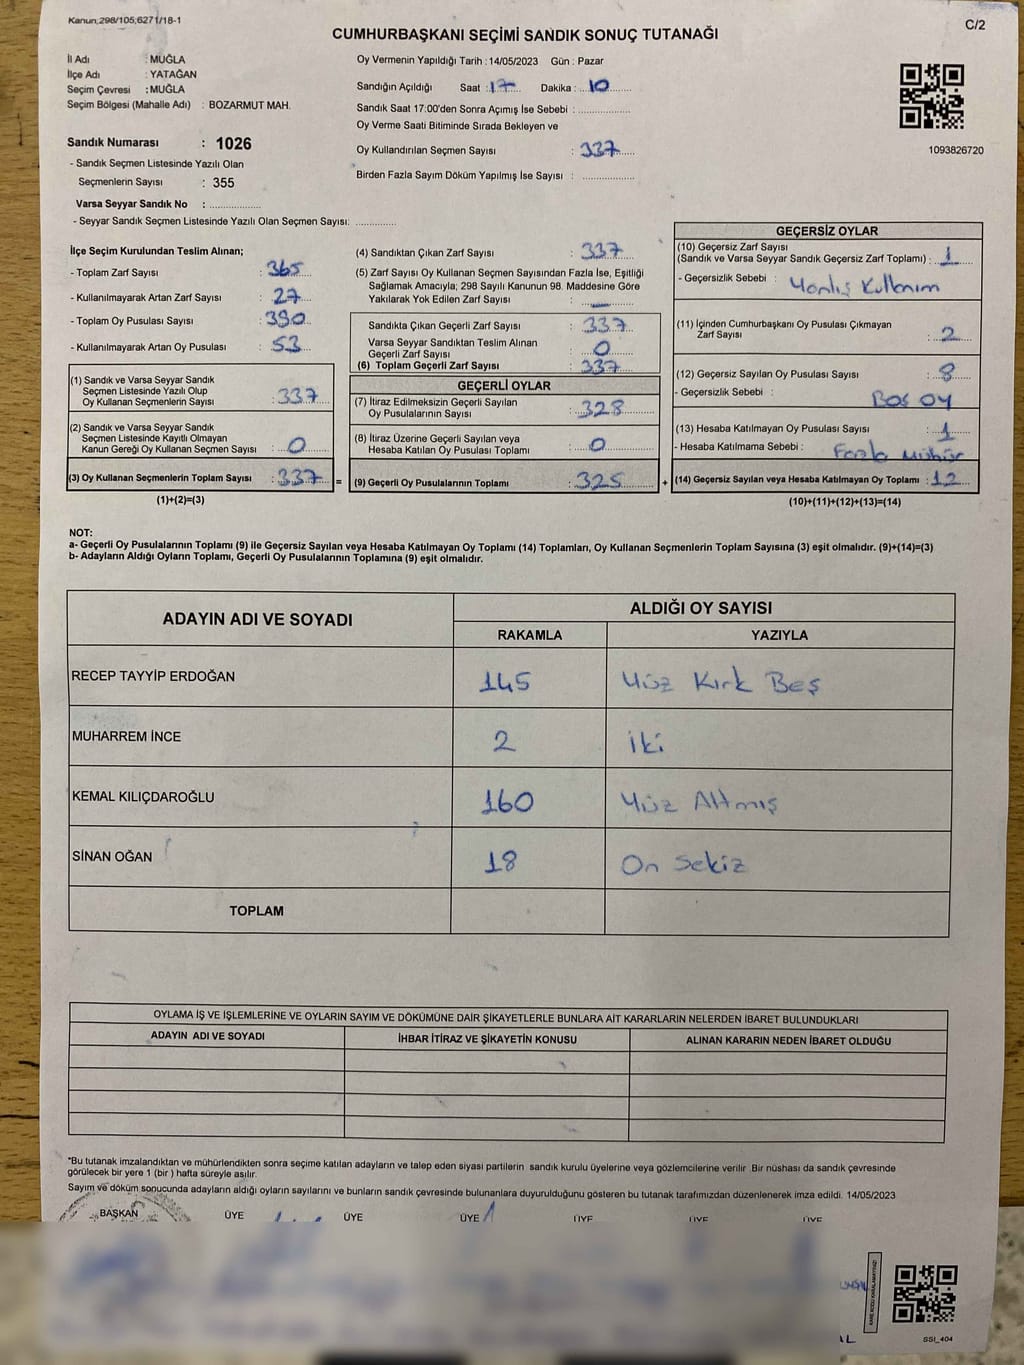 Kanun;298/105;6271/18-1
C/2
CUMHURBAŞKANI SEÇİMİ SANDIK SONUÇ TUTANAĞI
İl Adı : MUĞLA
İlçe Adı : YATAĞAN
Seçim Çevresi : MUĞLA
Seçim Bölgesi (Mahalle Adı) : BOZARMUT MAH.
Sandık Numarası : 1026
- Sandık Seçmen Listesinde Yazılı Olan
Seçmenlerin Sayısı : 355
Varsa Seyyar Sandık No : ..................
- Seyyar Sandık Seçmen Listesinde Yazılı Olan Seçmen Sayısı: ..............
Oy Vermenin Yapıldığı Tarih : 14/05/2023 Gün : Pazar
Sandığın Açıldığı Saat : 17 Dakika : 10
Sandık Saat 17:00'den Sonra Açımış İse Sebebi : ..................
Oy Verme Saati Bitiminde Sırada Bekleyen ve
Oy Kullandırılan Seçmen Sayısı : 337
Birden Fazla Sayım Döküm Yapılmış İse Sayısı : ..................
1093826720
İlçe Seçim Kurulundan Teslim Alınan;
- Toplam Zarf Sayısı : 365
- Kullanılmayarak Artan Zarf Sayısı : 27
- Toplam Oy Pusulası Sayısı : 390
- Kullanılmayarak Artan Oy Pusulası : 53
(1) Sandık ve Varsa Seyyar Sandık
Seçmen Listesinde Yazılı Olup
Oy Kullanan Seçmenlerin Sayısı : 337
(2) Sandık ve Varsa Seyyar Sandık
Seçmen Listesinde Kayıtlı Olmayan
Kanun Gereği Oy Kullanan Seçmen Sayısı : 0
(3) Oy Kullanan Seçmenlerin Toplam Sayısı : 337 =
(1)+(2)=(3)
(4) Sandıktan Çıkan Zarf Sayısı : 337
(5) Zarf Sayısı Oy Kullanan Seçmen Sayısından Fazla İse, Eşitliği
Sağlamak Amacıyla; 298 Sayılı Kanunun 98. Maddesine Göre
Yakılarak Yok Edilen Zarf Sayısı : —
Sandıkta Çıkan Geçerli Zarf Sayısı : 337
Varsa Seyyar Sandıktan Teslim Alınan
Geçerli Zarf Sayısı : 0
(6) Toplam Geçerli Zarf Sayısı : 337
GEÇERLİ OYLAR
(7) İtiraz Edilmeksizin Geçerli Sayılan
Oy Pusulalarının Sayısı : 328
(8) İtiraz Üzerine Geçerli Sayılan veya
Hesaba Katılan Oy Pusulası Toplamı : 0
(9) Geçerli Oy Pusulalarının Toplamı : 325 +
GEÇERSİZ OYLAR
(10) Geçersiz Zarf Sayısı
(Sandık ve Varsa Seyyar Sandık Geçersiz Zarf Toplamı) : 1
- Geçersizlik Sebebi : Yanlış Kullanım
(11) İçinden Cumhurbaşkanı Oy Pusulası Çıkmayan
Zarf Sayısı : 2
(12) Geçersiz Sayılan Oy Pusulası Sayısı : 8
- Geçersizlik Sebebi : Boş oy
(13) Hesaba Katılmayan Oy Pusulası Sayısı : 1
- Hesaba Katılmama Sebebi : Fazla Mühür
(14) Geçersiz Sayılan veya Hesaba Katılmayan Oy Toplamı : 12
(10)+(11)+(12)+(13)=(14)
NOT:
a- Geçerli Oy Pusulalarının Toplamı (9) ile Geçersiz Sayılan veya Hesaba Katılmayan Oy Toplamı (14) Toplamları, Oy Kullanan Seçmenlerin Toplam Sayısına (3) eşit olmalıdır. (9)+(14)=(3)
b- Adayların Aldığı Oyların Toplamı, Geçerli Oy Pusulalarının Toplamına (9) eşit olmalıdır.
ADAYIN ADI VE SOYADI ALDIĞI OY SAYISI
RAKAMLA YAZIYLA
RECEP TAYYİP ERDOĞAN 145 Yüz Kırk Beş
MUHARREM İNCE 2 İki
KEMAL KILIÇDAROĞLU 160 Yüz Altmış
SİNAN OĞAN 18 On Sekiz
TOPLAM
OYLAMA İŞ VE İŞLEMLERİNE VE OYLARIN SAYIM VE DÖKÜMÜNE DAİR ŞİKAYETLERLE BUNLARA AİT KARARLARIN NELERDEN İBARET BULUNDUKLARI
ADAYIN ADI VE SOYADI İHBAR İTİRAZ VE ŞİKAYETİN KONUSU ALINAN KARARIN NEDEN İBARET OLDUĞU
*Bu tutanak imzalandıktan ve mühürlendikten sonra seçime katılan adayların ve talep eden siyasi partilerin sandık kurulu üyelerine veya gözlemcilerine verilir .Bir nüshası da sandık çevresinde
görülecek bir yere 1 (bir ) hafta süreyle asılır.
Sayım ve döküm sonucunda adayların aldığı oyların sayılarını ve bunların sandık çevresinde bulunanlara duyurulduğunu gösteren bu tutanak tarafımızdan düzenlenerek imza edildi. 14/05/2023
BAŞKAN ÜYE ÜYE ÜYE ÜYE ÜYE ÜYE
KARE KODU KARALAMAYINIZ!
SSI_404